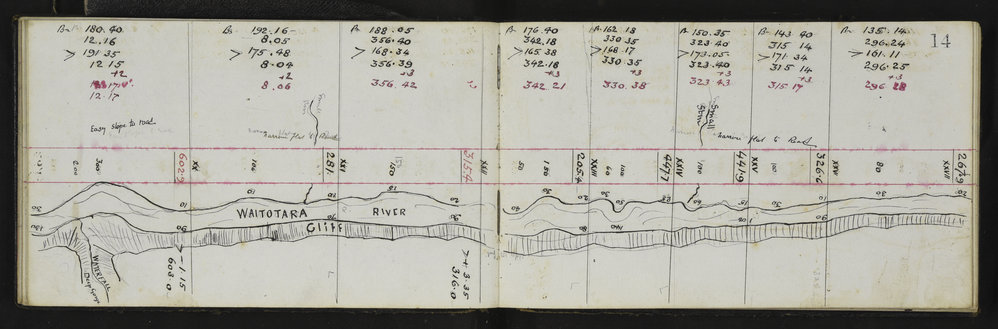 B. 180.40
12.16
> 191.35
12.15
+2
12.17
B. 192.16
8.05
> 175.48
8.04
+2
8.06
A. 188.05
356.40
> 168.34
356.39
+3
356.42
A. 176.40
342.18
> 165.38
342.18
+3
342.21
A. 162.18
330.35
> 168.17
330.35
+3
330.38
A. 150.35
323.40
> 173.05
323.40
+3
323.43
B. 143.40
315 14
> 171.34
315.14
+3
315.17
A. 135.14
296.24
> 161.11
296.25
+3
296 28
14
Easy slope to road
Small
Stream
narrow flat to Road
300
200
602.9
XX
100
281.
XXI
150
315.4
XXII
50
100
205.4
XXIII
60
100
447.7
XXIV
100
441.9
XX
100
326.6
XXV
80
XXVII
267.9
WAITOTARA RIVER
Cliff
WATERFALL
Deep Gorge
> -1.5
603.0
> +3.35
316.0